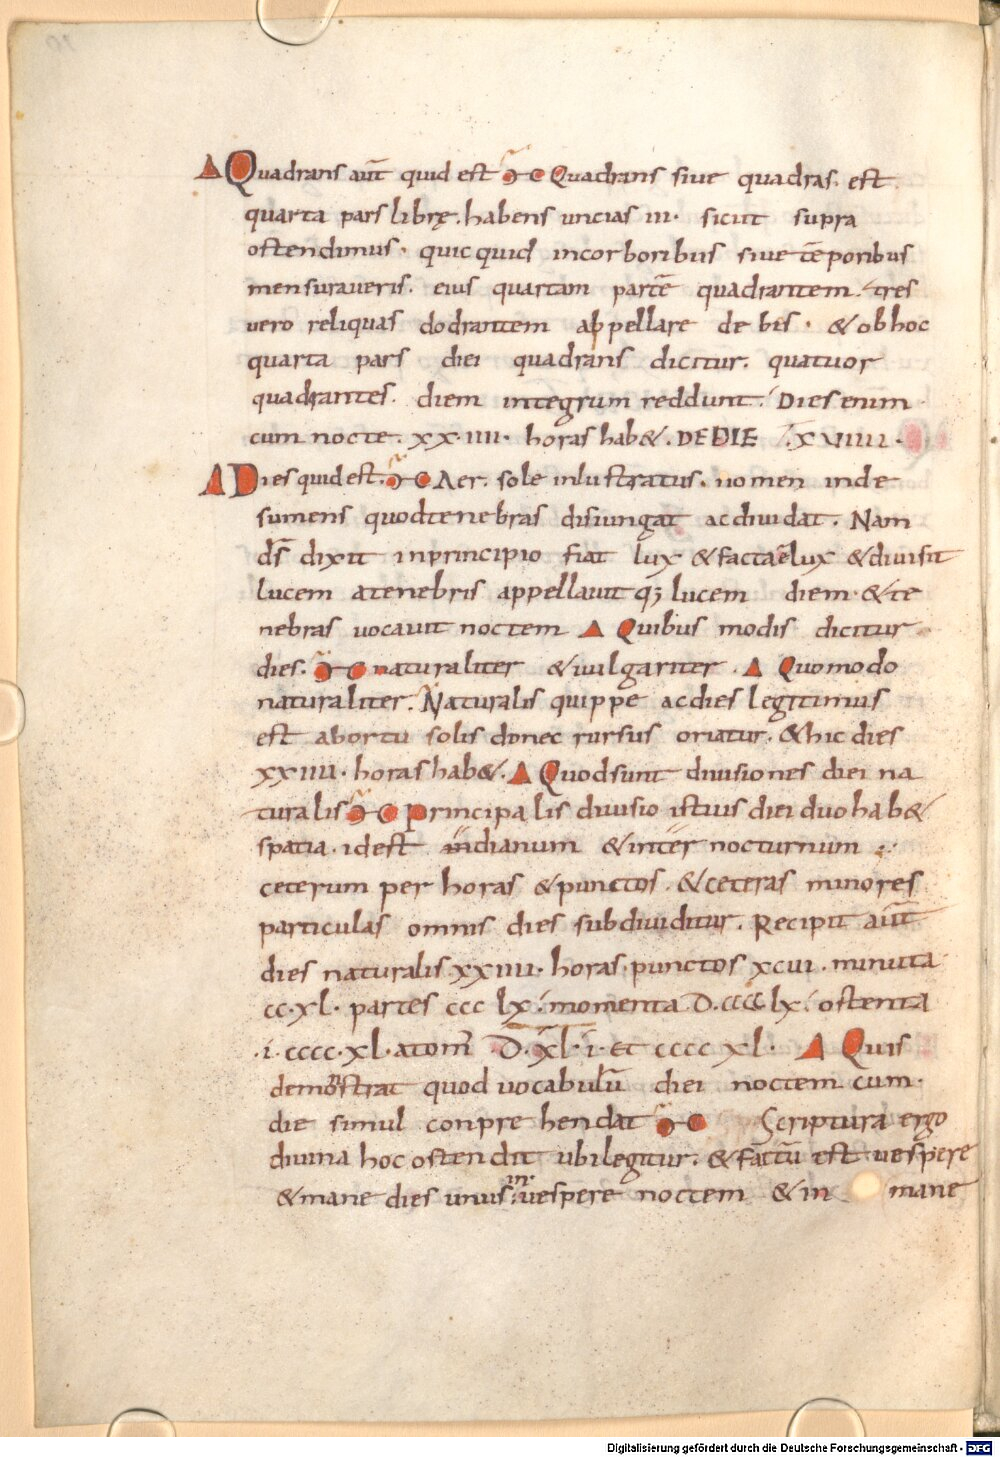 Δ Quadrans aut̄ quid est ⁊ Quadrans siue quadras. est
quarta pars librę. habens uncias iii· sicut supra
ostendimus· quicquid incorboribus siue tēporibus
mensuraueris. eius quartam partē quadrantem. tres
uero reliquas dodrantem appellare debis· & ob hoc
quarta pars diei quadrans dicitur. quatuor
quadrantes. diem integrum reddunt. Dies enim
cum nocte. xx·iiii· horas hab&. DE DIE .xviiii.
Δ Dies quid est. Aer. sole inlustratus. nomen inde
sumens quod tenebras disiungat ac diuidat. Nam
ds̄ dixit inprincipio fiat lux & facta ē lux & diuisit
lucem atenebris appellauit q; lucem diem· & te
nebras uocauit noctem Δ Quibus modis dicitur
dies. naturaliter & uulgariter. Δ Quomodo
naturaliter. Naturalis quippe ac dies legitimus
est abortu solis donec rursus oriatur. & hic dies
xxiiii· horas hab&. Δ Quod sunt diuisiones diei na
turalis Principalis diuisio istius diei duo hab&
spatia. id est indianum & inter nocturnum
ceterum per horas & punctos. & ceteras minores
particulas omnis dies subdiuiditur. Recipit aut̄
dies naturalis xxiiii· horas· punctos xcui. minuta
cc·xl· partes ccc lx· momenta D.cccc lx· ostenta
·i·cccc·xl·atom̄ D·xl·i·et cccc xl· Δ Quis
demōstrat quod uocabulū diei noctem cum·
die simul conprehendat Scriptura ergo
diuina hoc ostendit ubi legitur. & factū est uespere
& mane dies unus: in uespere noctem & in mane
Digitalisierung gefördert durch die Deutsche Forschungsgemeinschaft - DFG